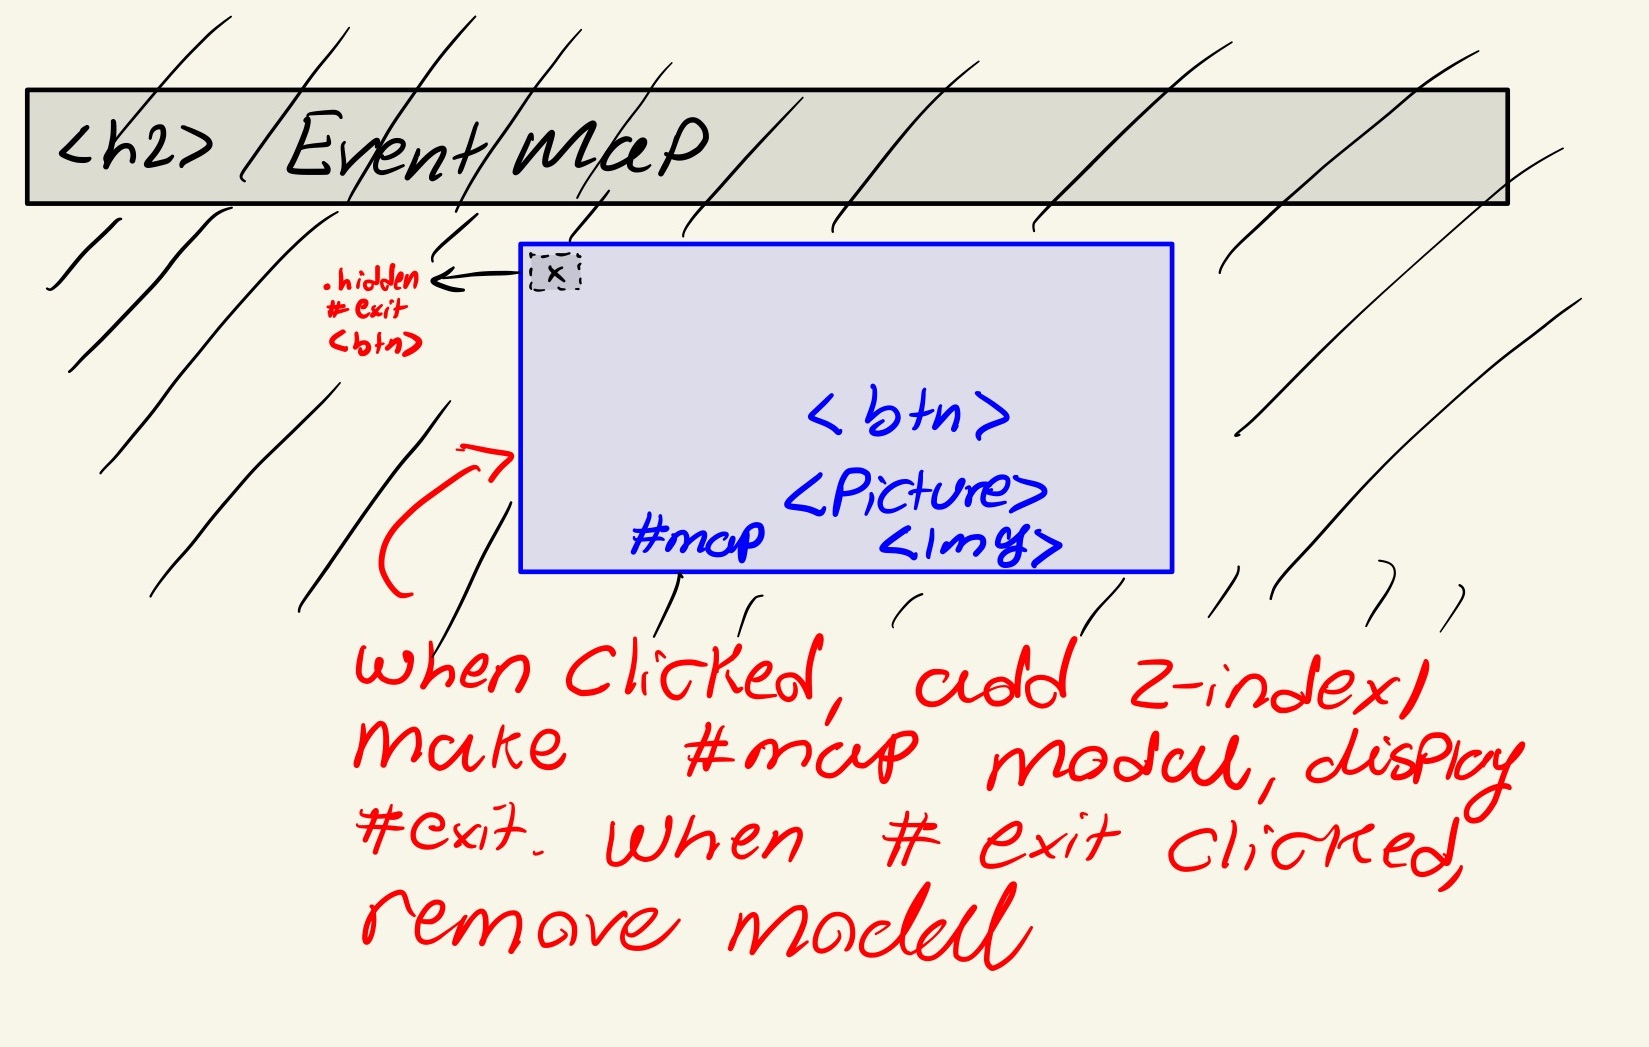 <h2> Event Map
x
.hidden
#exit
<btn>
<btn>
<Picture>
#map <Img>
when clicked, add z-index,
make #map modal, display
#exit. when #exit clicked,
remove modal